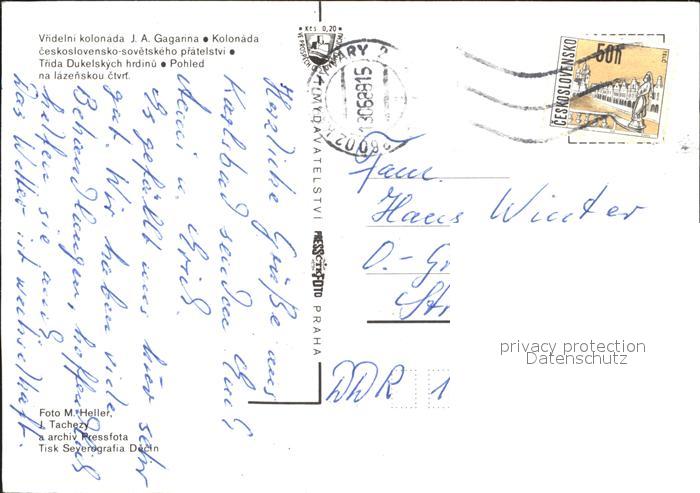 Vřídelní kolonáda J. A. Gagarina • Kolonáda
československo-sovětského přátelství •
Třída Dukelských hrdinů • Pohled
na lázeňskou čtvrť.
Herzliche Grüße aus
Karlsbad senden Euch
Anni u. Erich.
Es gefällt uns hier sehr
gut. Wir haben viele
Behandlungen, hoffentlich
helfen sie auch.
Das Wetter ist wechselhaft.
Foto M. Heller,
J. Tachezy
a archiv Pressfota
Tisk Severografia Děčín
Kčs 0,20
VYDAVATELSTVÍ PRESSFOTO PRAHA
VARY 2
13.6.68-15
360 02
ČESKOSLOVENSKO
50h
TELČ
Fam.
Hans Winter
O.-Gr
Str
DDR 1
privacy protection
Datenschutz